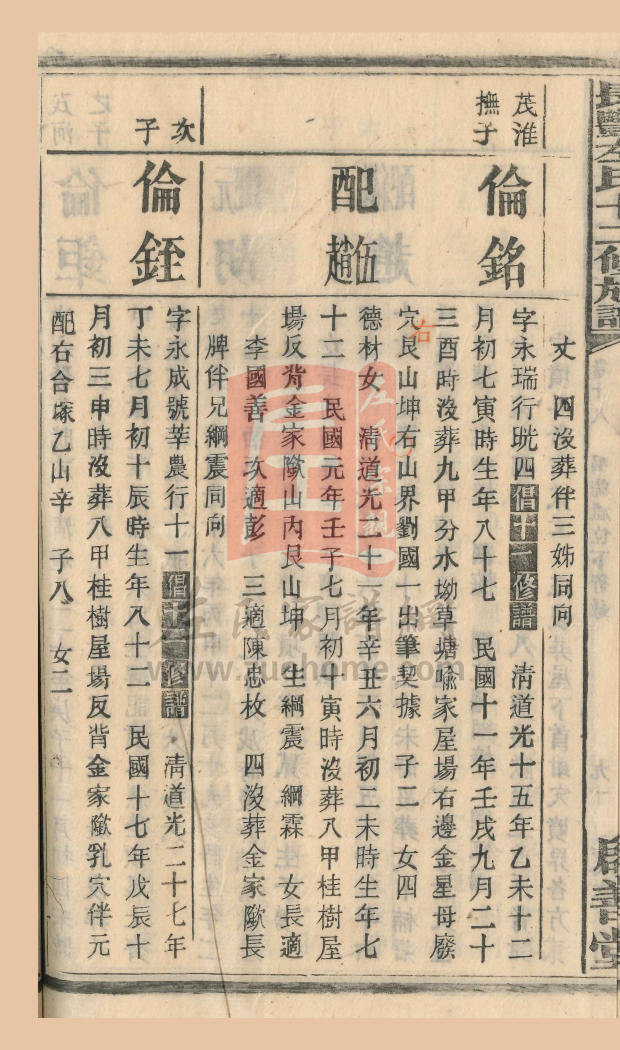 長豐左氏十二修族譜
啟善堂
丈 四沒葬伴三姊同向
茂淮
撫子
倫銘
字永瑞行晄四倡十一修譜 清道光十五年乙未十二
月初七寅時生年八十七 民國十一年壬戌九月二十
三酉時沒葬九甲分水坳草塘喻家屋場右邊金星母廢
穴艮山坤右山界劉國一出筆契據 子二 女四
配
趙伍
德材女 清道光二十一年辛丑六月初二未時生年七
十二 民國元年壬子七月初十寅時沒葬八甲桂樹屋
場反背金家歟山內艮山坤 生綱震 綱霖 女長適
李國善 次適彭 三適陳忠枚 四沒葬金家歟長
牌伴兄綱震同向
次
子
倫銍
字永成號莘農行十一倡十一修譜 清道光二十七年
丁未七月初十辰時生年八十二 民國十七年戊辰十
月初三申時沒葬八甲桂樹屋場反背金家歟乳穴伴元
配右合塚乙山辛 子八 女二
右
左氏宗親
左氏家譜網
www.zuohome.com